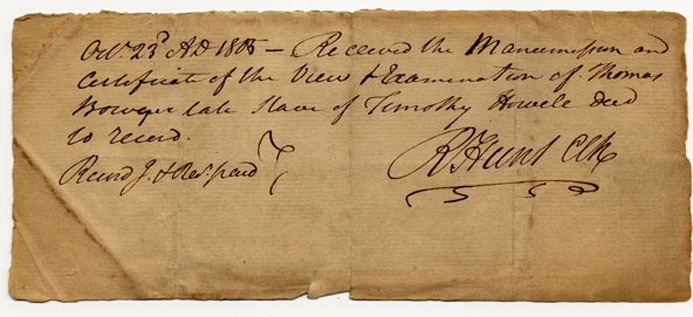 Octr. 23d AD 1805 – Received the Manumission and
Certificate of the View & Examination of Thomas
late Slave of Timothy Howell decd
to record.
R Hunt Clk